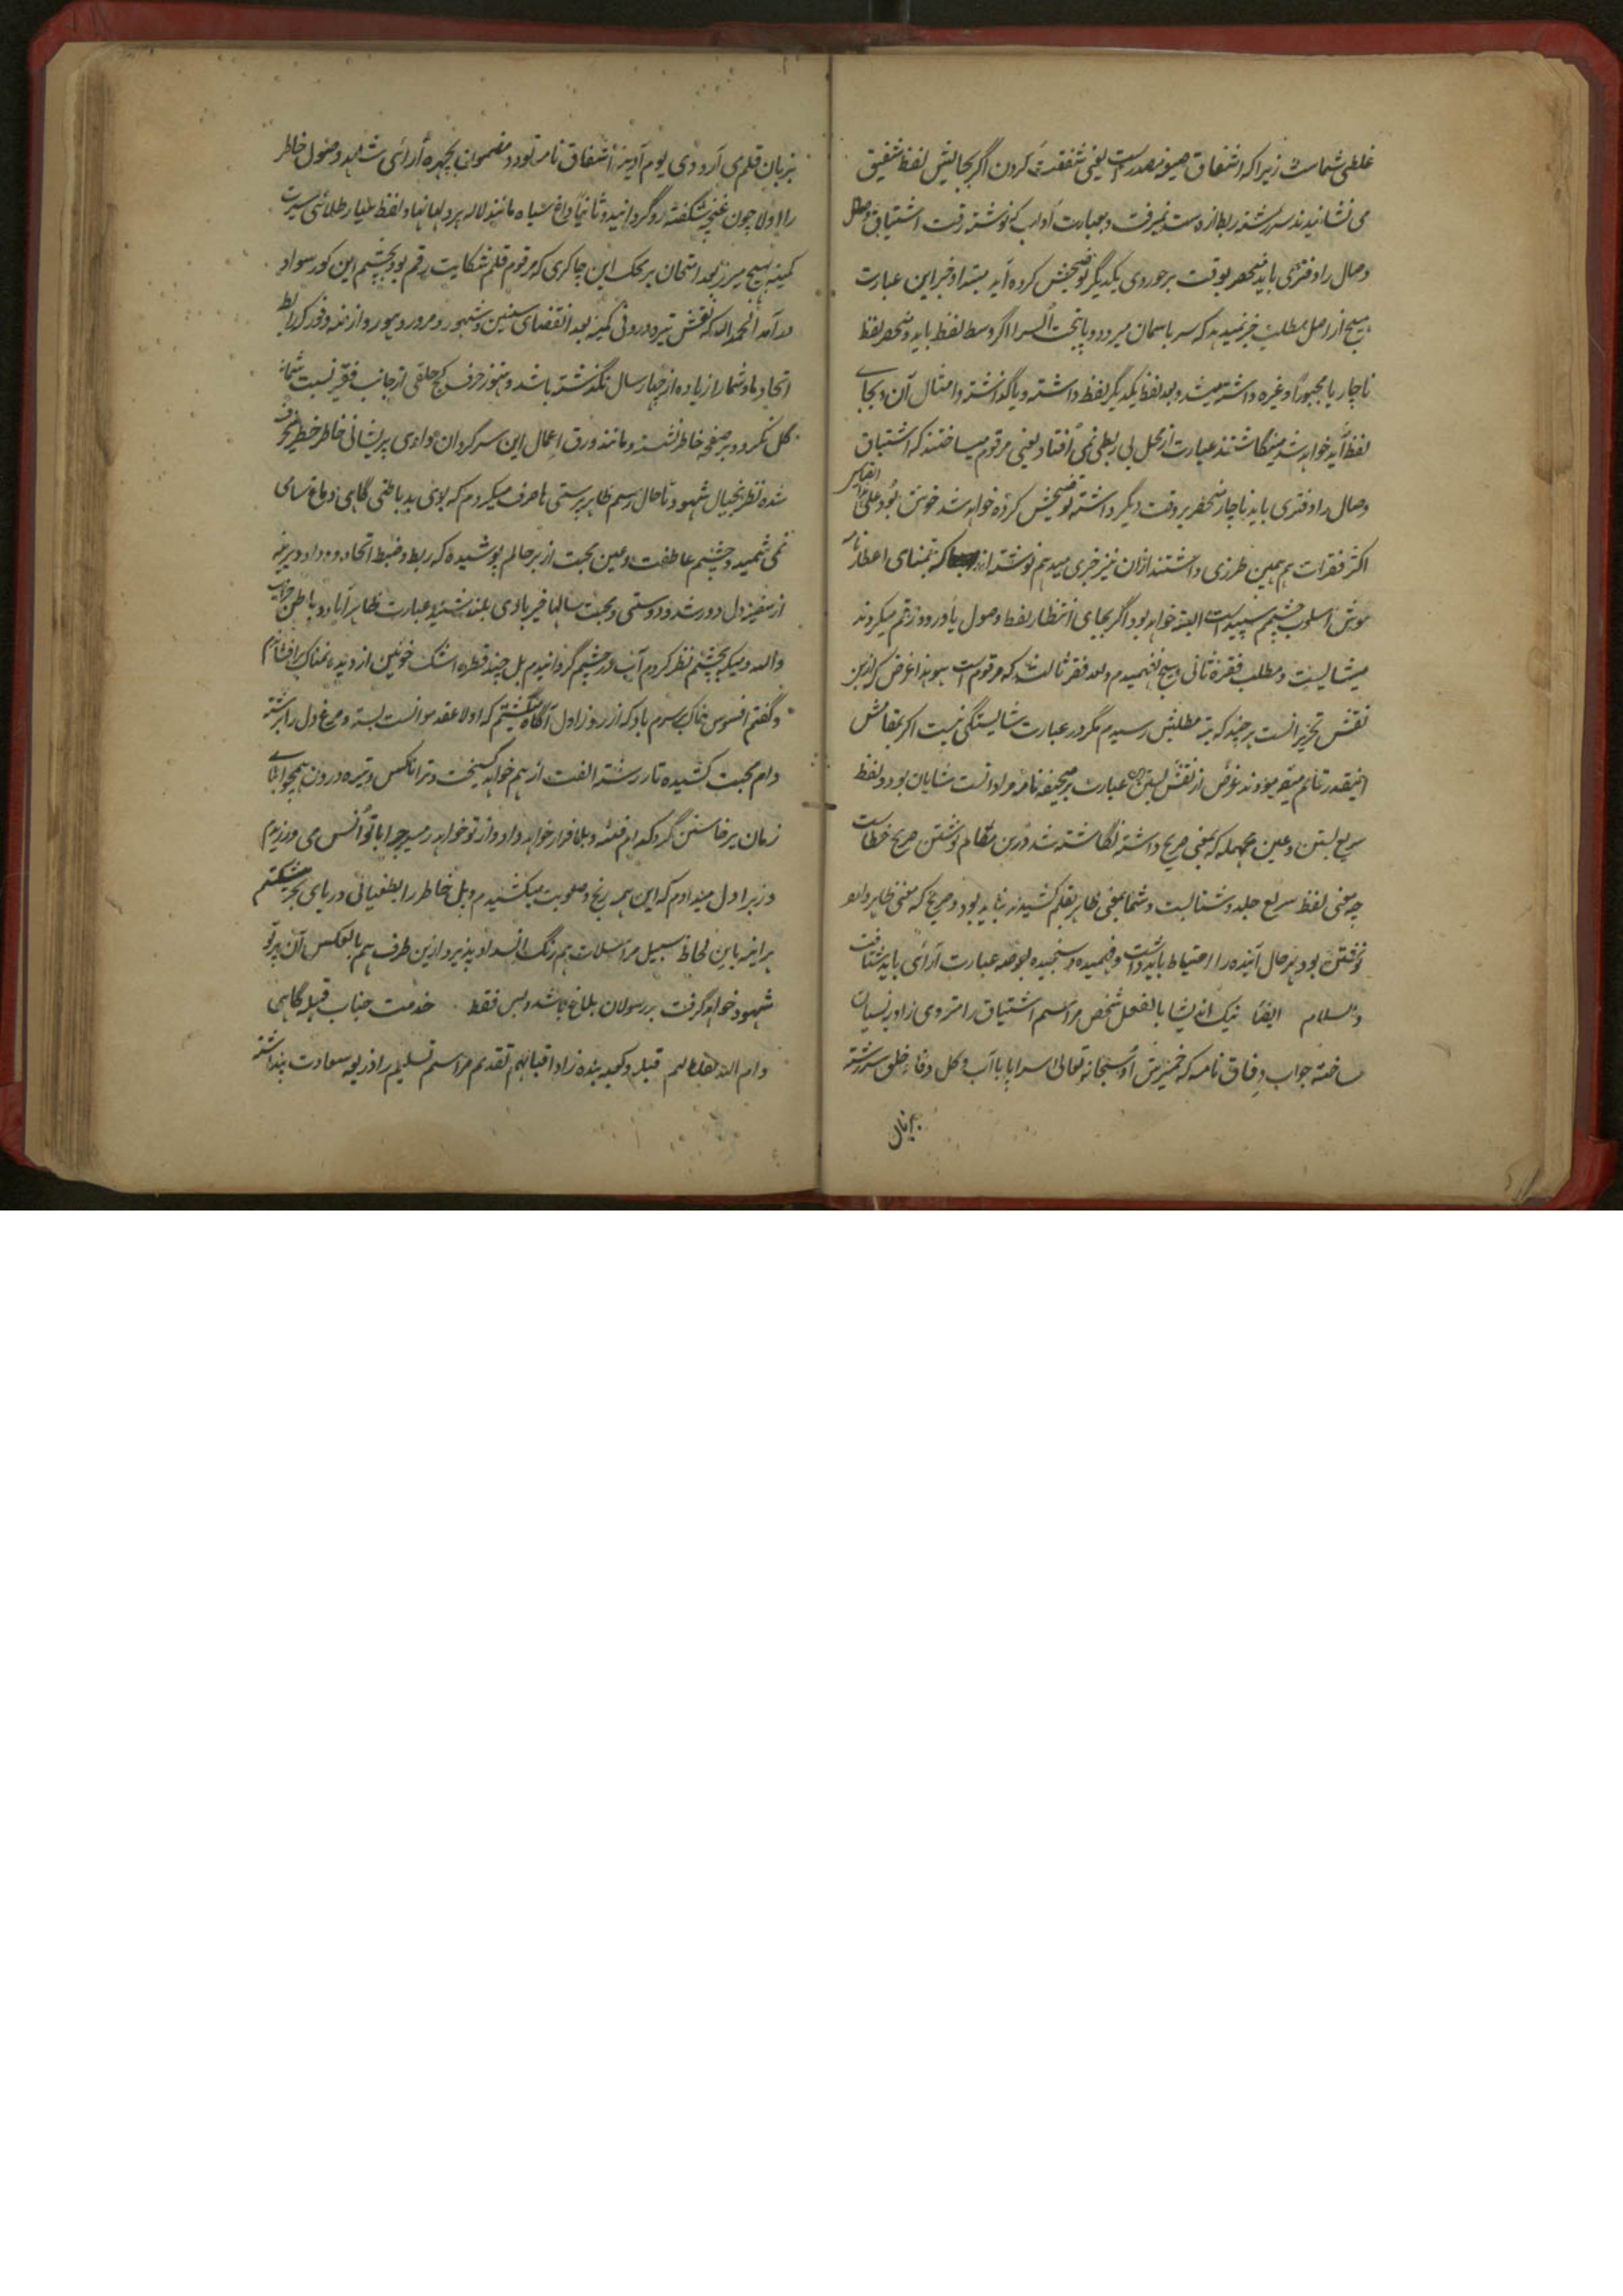 غلطی شماست زیرا که اشفاق صیغه مصدر است یعنی شفقت کردن اگر بجایش لفظ شفیق
می نشانیدند سررشته ربط از دست نمیرفت و بعبارت آداب که نوشته رقت اشتیاق وصال
وصال را دفتری باید منحصر بوقت برخوردی یکدیگر توضیحش کرده آید مبتدا و خبر این عبارت
هیچ از اصل مطلب خبر نمیدهد که سر باسمان میرود و پا بتحت الثرا اگر وسط لفظ باید و منحصر لفظ
ناچار یا مجبوراً وغیره داشته میشد و بعد لفظ یکدیگر لفظ داشته و یا گذاشته و امثال آن و بجای
لفظ آید خواهد شد مینگاشتند عبارت از محل بی ربطی نمی افتاد یعنی مرقوم میساختند که اشتیاق
وصال را دفتری باید ناچار منحصر بر وقت دیگر داشته توضیحش کرده خواهد شد خوشتر بود علی هذا القیاس
اکثر فقرات هم همین طرزی داشتند ازان نیز خبری میدهم نوشته اند که تمنای اعطار نامه
موش اسلوب چشم سپید است البته خواهد بود اگر بجای انتظار لفظ وصول یا ورود رقم میکردند
میشایست و مطلب فقره ثانی هیچ نفهمیدم و بعد فقره ثالث که مرقوم است هویدا غرض که ازین
نقش تحریر انست هرچند که بته مطلبش رسیدم مگر در عبارت شایستگی نیست اگر بمقامش
اینقدر تانم میفرمودند غرض از نقش بستن عبارت بر صحیفه نامه مراد انست شایان بود و لفظ
سریع بستن و عین مهمله که بمعنی صریح داشته نگاشته شد درین مقام نوشتن صریح خطاست
چه معنی لفظ سریع جلد و شتابست و شما بمعنی ظاهر بقلم کشیدند نباید بود و صریح که معنی ظاهر دارد
نوشتن بود بهر حال آینده را احتیاط باید داشت و فهمیده و سنجیده بعرصه عبارت آرائی باید شتافت
والسلام ایضاً نیک اندیشا بالفعل شخص مراسم اشتیاق را منزوی زاویه نسیان
ساخته جواب وفاق نامه که خمیرش او سبحانه تعالی سراپا با آب و گل وفا و خلق سررشته
بزبان
بزبان قلم می آرد ودی یوم آدینه اشفاق نامه تود و مضمون چهره آرای شاهد وصول خاطر
را اولا چون غنچه شگفته رو گردانید و ثانیاً داغ سیاه مانند لاله بر دلها نهاد لفظ عیار طلائی سیرت
کمینه هیچ میرزد بعد امتحان بر محک این چاکری که مرقوم قلم شکایت رقم بود بچشم این کور سواد
درآمد الحمد لله که نقش تیره درونی کمینه بعد انقضای سنین و شهور و مرور دهور و ازمنه وفور که ربط
اتحاد ما و شما را زیاده از چهار سال نگذشته باشد و هنوز حرف کج خلقی از جانب فقیر نسبت شما
گل نکرد و بر صفحه خاطر نشسته و مانند ورق اعمال این سرگردان وادی پریشانی خاطر خطیر منحرف
شده نظر بخیال شهود تا حال رسم ظاهرپرستی را صرف میکردم که بوی بد باطنی گاهی دماغ سامی
نمی شمید و چشم عاطفت و عین محبت از بر حالم پوشیده که ربط و ضبط اتحاد و وداد دیرینه
از سفینه دل دور شد و دوستی و محبت سالها خیر بادی بلند شنید عبارت ظاهر آباد و باطن خراب
والله دمیکه بچشم نظر کردم آب در چشم گردانیدم بل چند قطره اشک خونین از دیده نمناک برافشاندم
و گفتم افسوس خاک بسرم باد که از روز اول آگاه نگشتم که اولا عقد موانست بسته و مرغ دل را برشته
دام محبت کشیده تار رشته الفت از هم خواهد گسیخت و ترا ناکس و تیره درون همچو ابنای
زمان برخاستن گرد کدام فتنه و بلا قرار خواهد داد و از تو خواهد رمید چرا با تو انس می ورزیدم
و زیرا دل میدادم که این همه رنج و صعوبت میکشیدم و بل خاطر را بطغیانی دریای بحر میشکستم
برینه باین لحاظ سبیل مراسلات هم رنگ انسداد پذیرد ازین طرف هم بالعکس آن پرتو
شهود خواهد گرفت بر رسولان بلاغ باشد و بس فقط خدمت جناب قبله گاهی
دام الله ظلالهم قبله و کعبه بنده زاد اقبالهم تقدیم مراسم تسلیم را ذریعه سعادت پنداشته